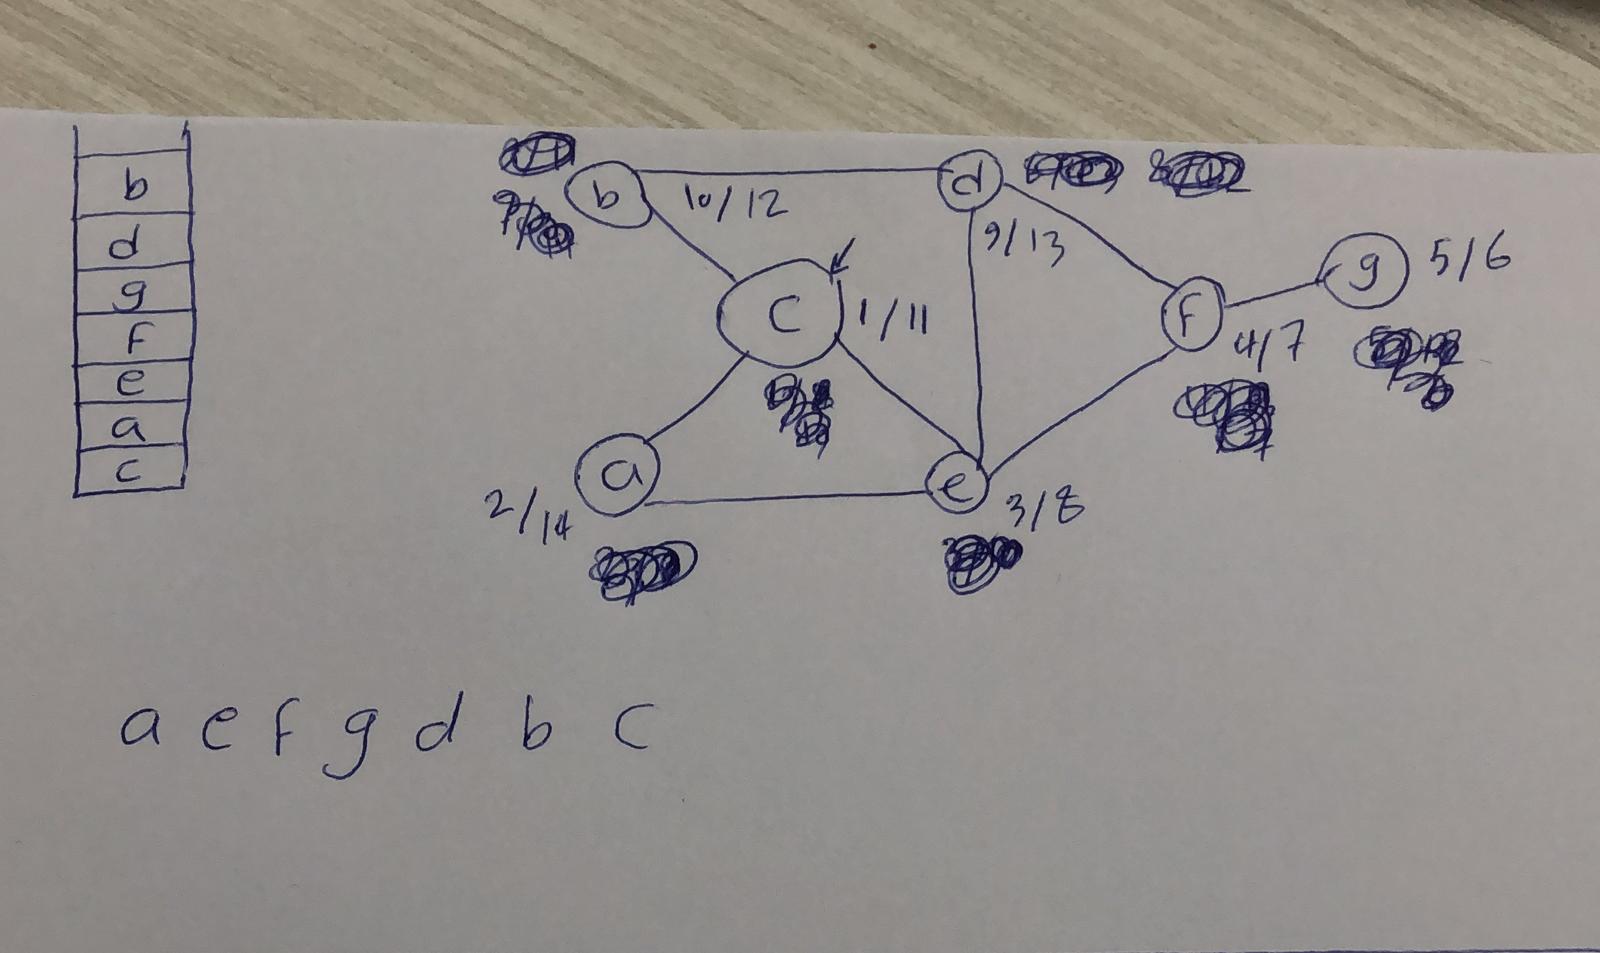 b
d
g
f
e
a
c
b
10/12
d
9/13
g 5/6
c 1/11
f
4/7
a
2/14
e
3/8
a e f g d b c